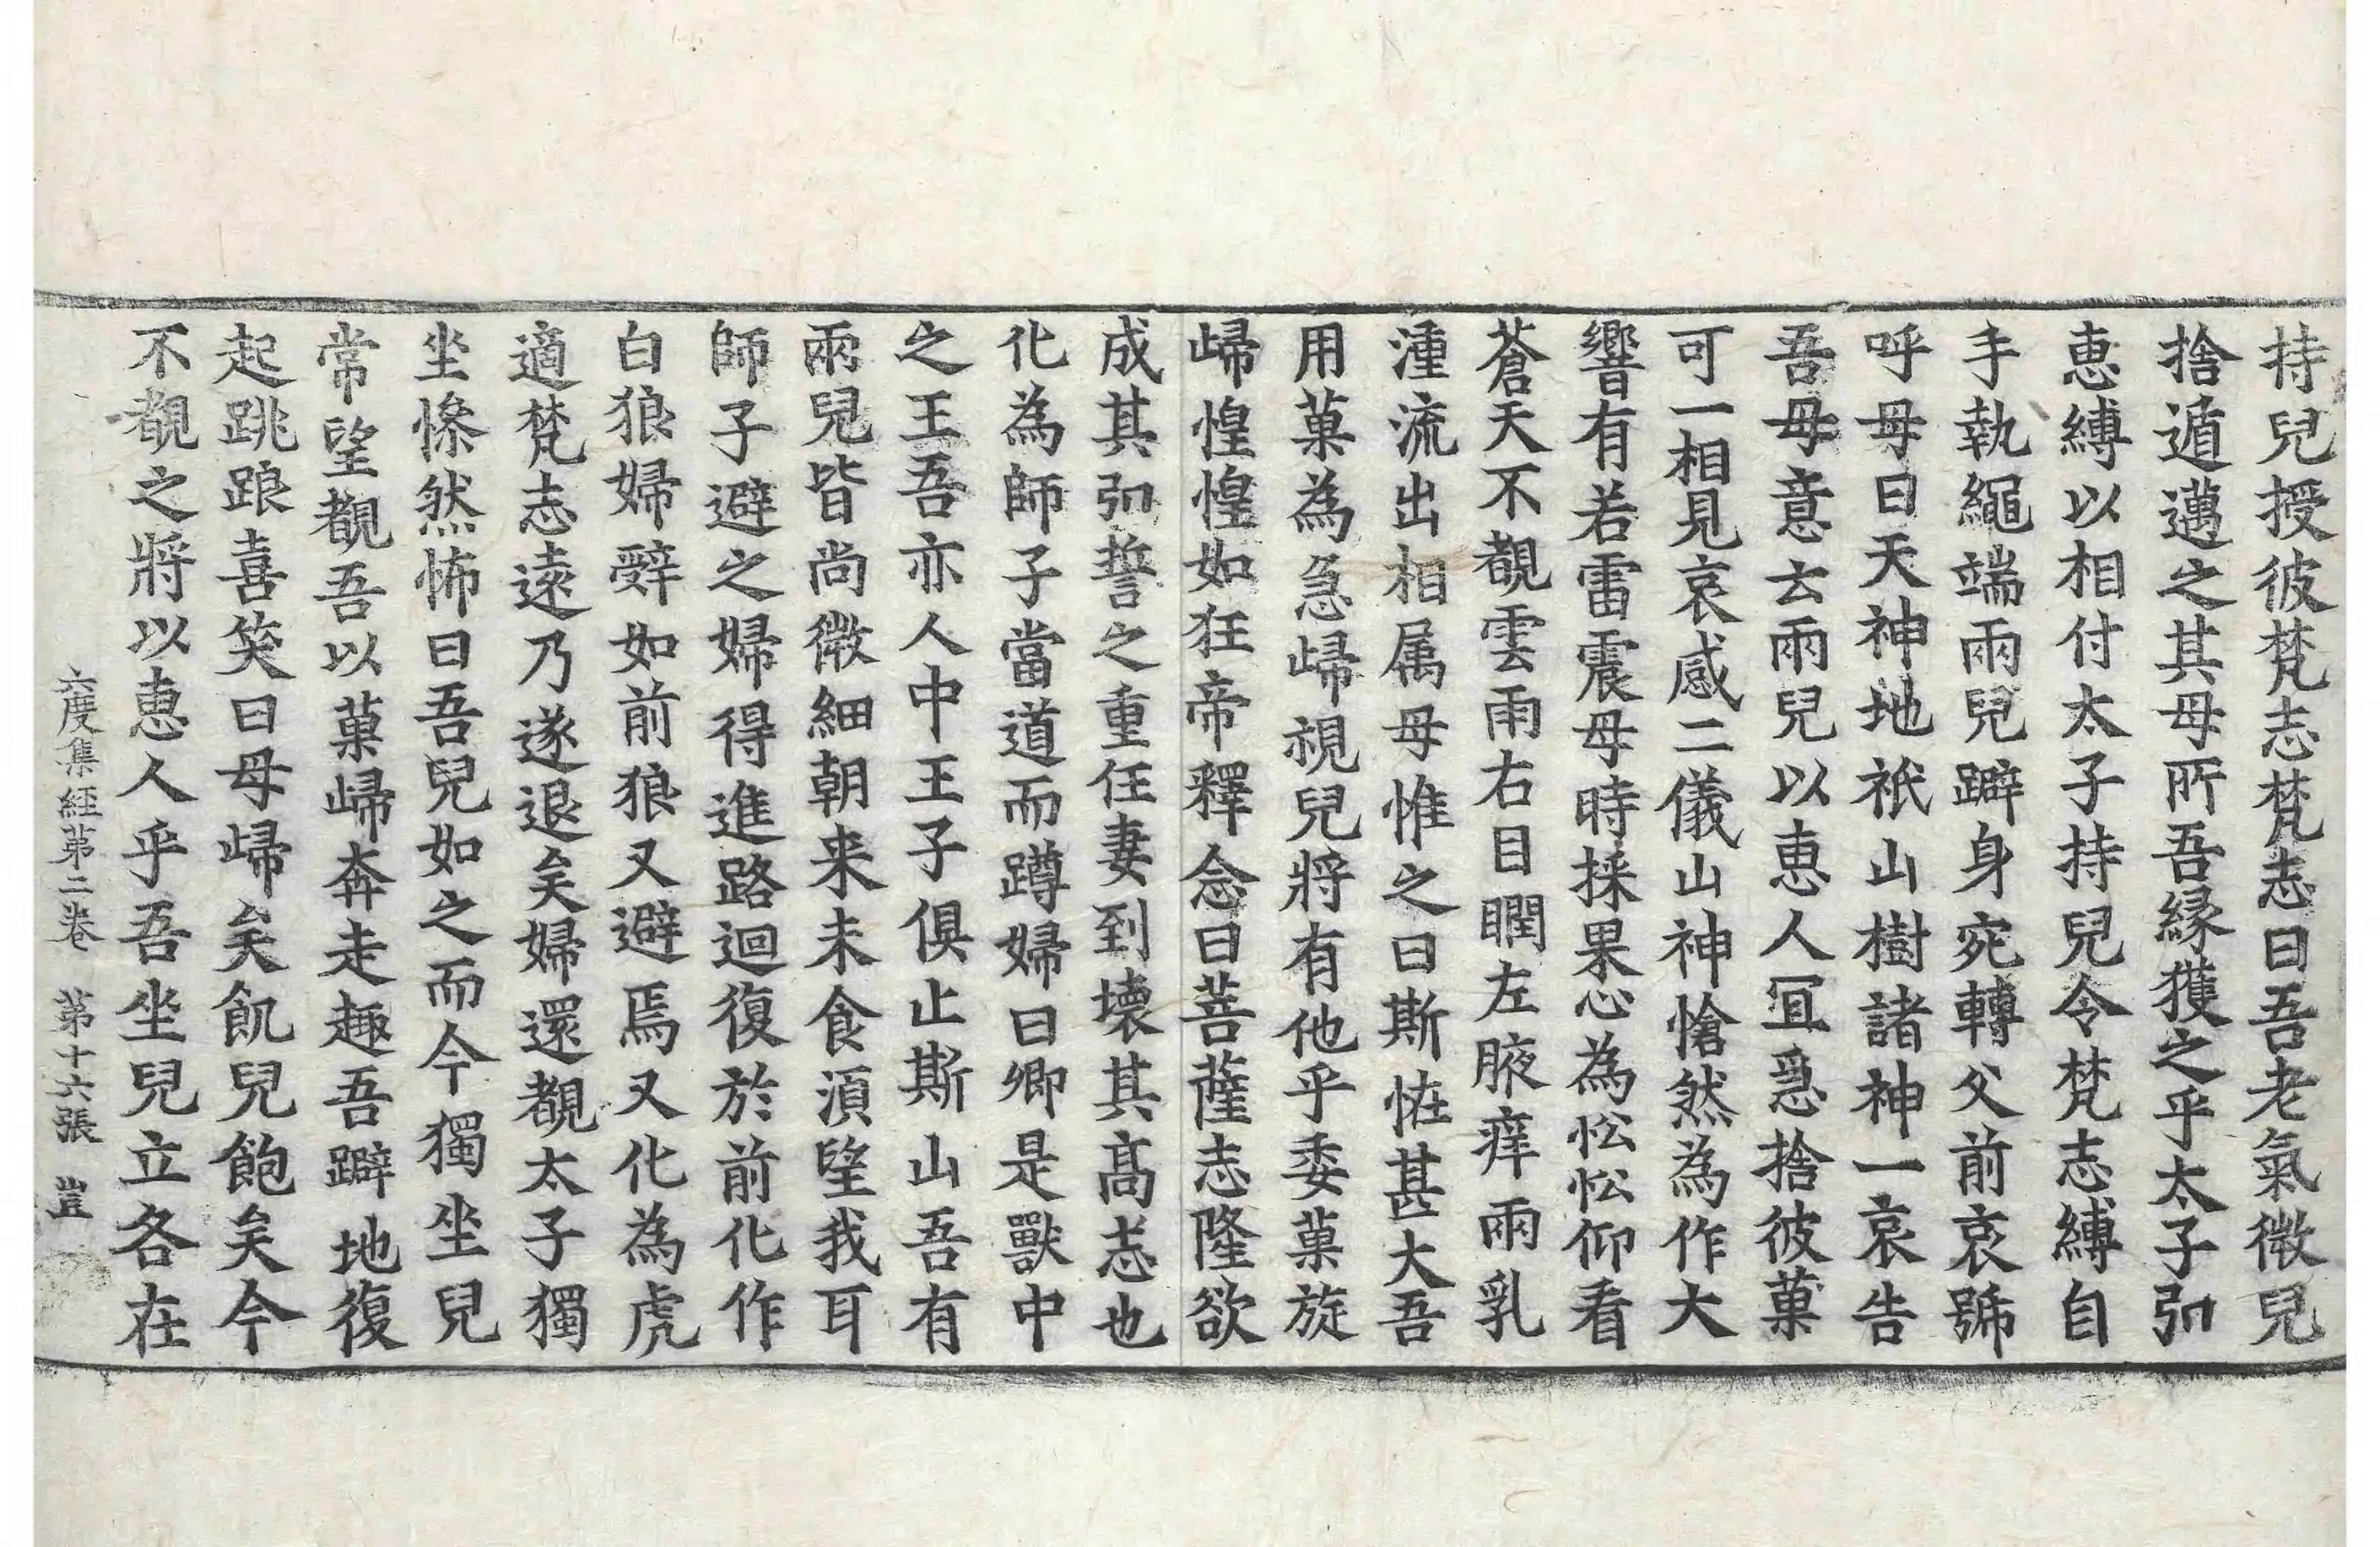 持兒授彼梵志梵志曰吾老氣微兒
捨遁邁之其母所吾緣獲之乎太子弘
惠縛以相付太子持兒令梵志縛自
手執繩端兩兒躃身宛轉父前哀號
呼母曰天神地祇山樹諸神一哀告
吾母意云兩兒以惠人冝急捨彼菓
可一相見哀感二儀山神愴然為作大
響有若雷震母時採果心為忪忪仰看
蒼天不覩雲雨右目瞤左腋痒兩乳
湩流出相属母惟之曰斯恠甚大吾
用菓為急歸視兒將有他乎委菓旋
歸惶惶如狂帝釋念曰菩薩志隆欲
成其弘誓之重任妻到壞其髙志也
化為師子當道而蹲婦曰卿是獸中
之王吾亦人中王子俱止斯山吾有
兩兒皆尚微細朝来未食湏望我耳
師子避之婦得進路迴復於前化作
白狼婦辤如前狼又避焉又化為虎
適梵志遠乃遂退矣婦還覩太子獨
坐慘然怖曰吾兒如之而今獨坐兒
常望覩吾以菓歸奔走趣吾躃地復
起跳踉喜笑曰母歸矣飢兒飽矣今
不覩之將以惠人乎吾坐兒立各在
六度集經第二卷 第十六張 豈